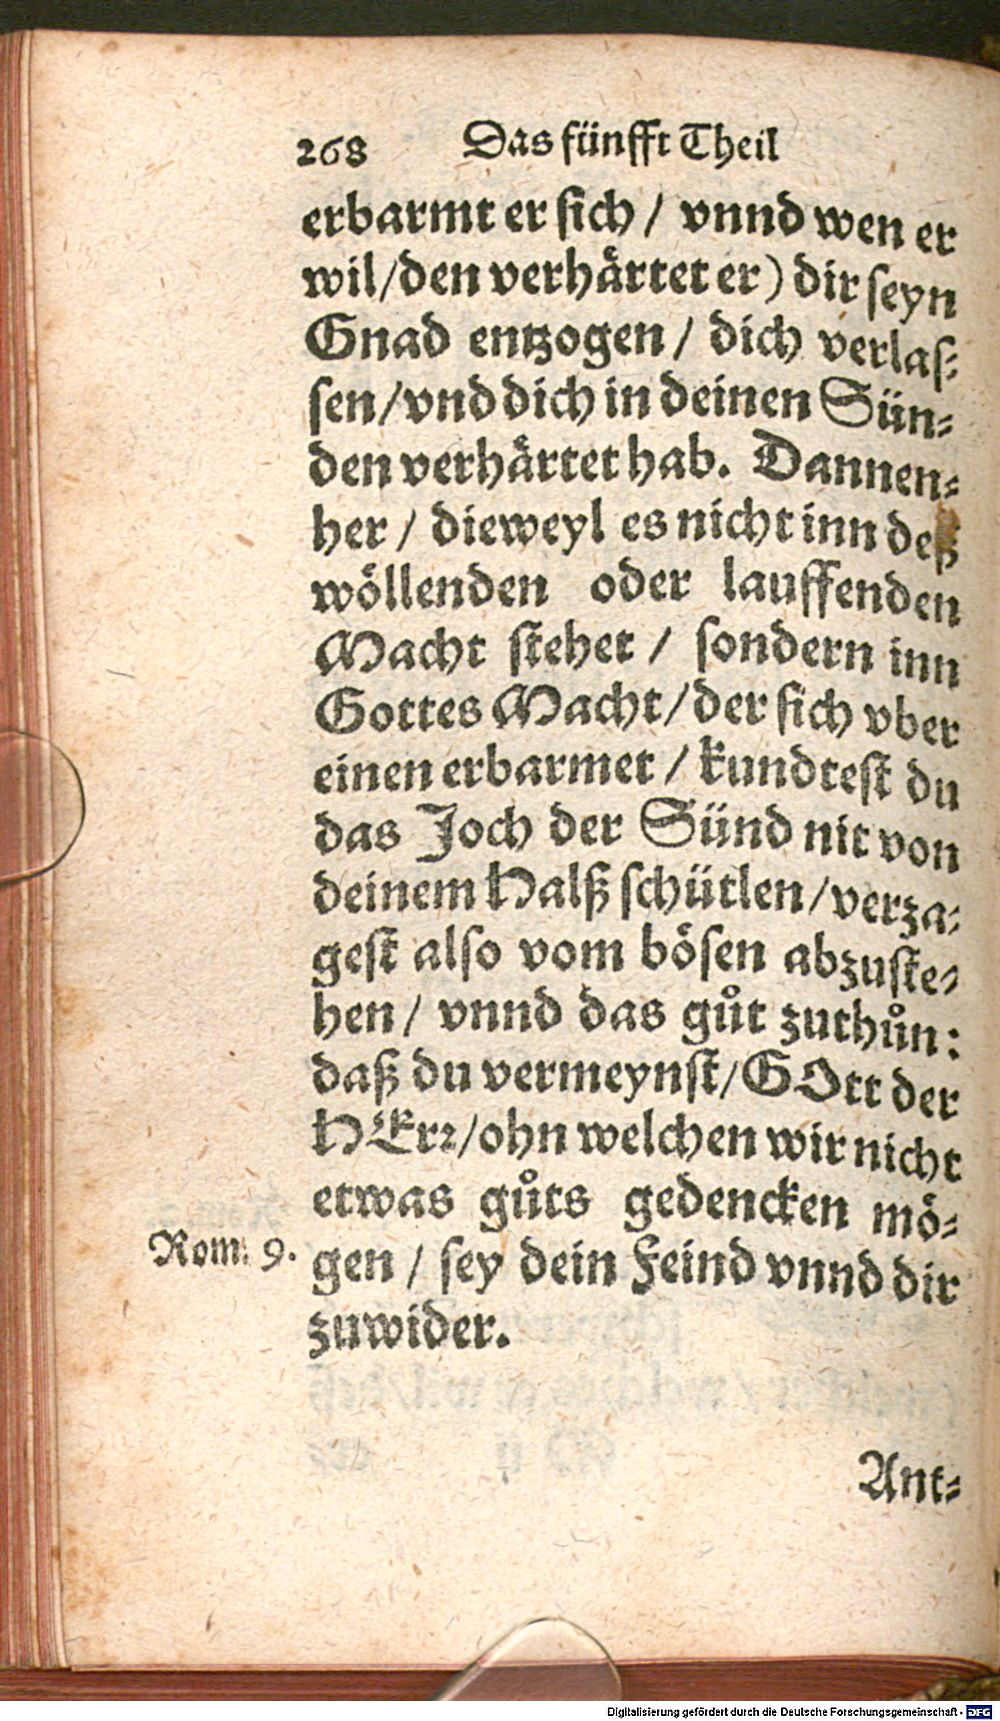 268 Das fünfft Theil
erbarmt er sich / vnnd wen er
wil/den verhärtet er) dir seyn
Gnad entzogen / dich verlas-
sen/vnd dich in deinen Sün-
den verhärtet hab. Dannen-
her / dieweyl es nicht inn deß
wöllenden oder lauffenden
Macht stehet / sondern inn
Gottes Macht/der sich vber
einen erbarmet / kundtest du
das Joch der Sünd nit von
deinem Halß schütlen/verza-
gest also vom bösen abzuste-
hen / vnnd das gůt zuthůn:
daß du vermeynst/GOtt der
HErr/ohn welchen wir nicht
etwas gůts gedencken mö-
Rom. 9. gen / sey dein Feind vnnd dir
zuwider.
Ant-
Digitalisierung gefördert durch die Deutsche Forschungsgemeinschaft - DFG